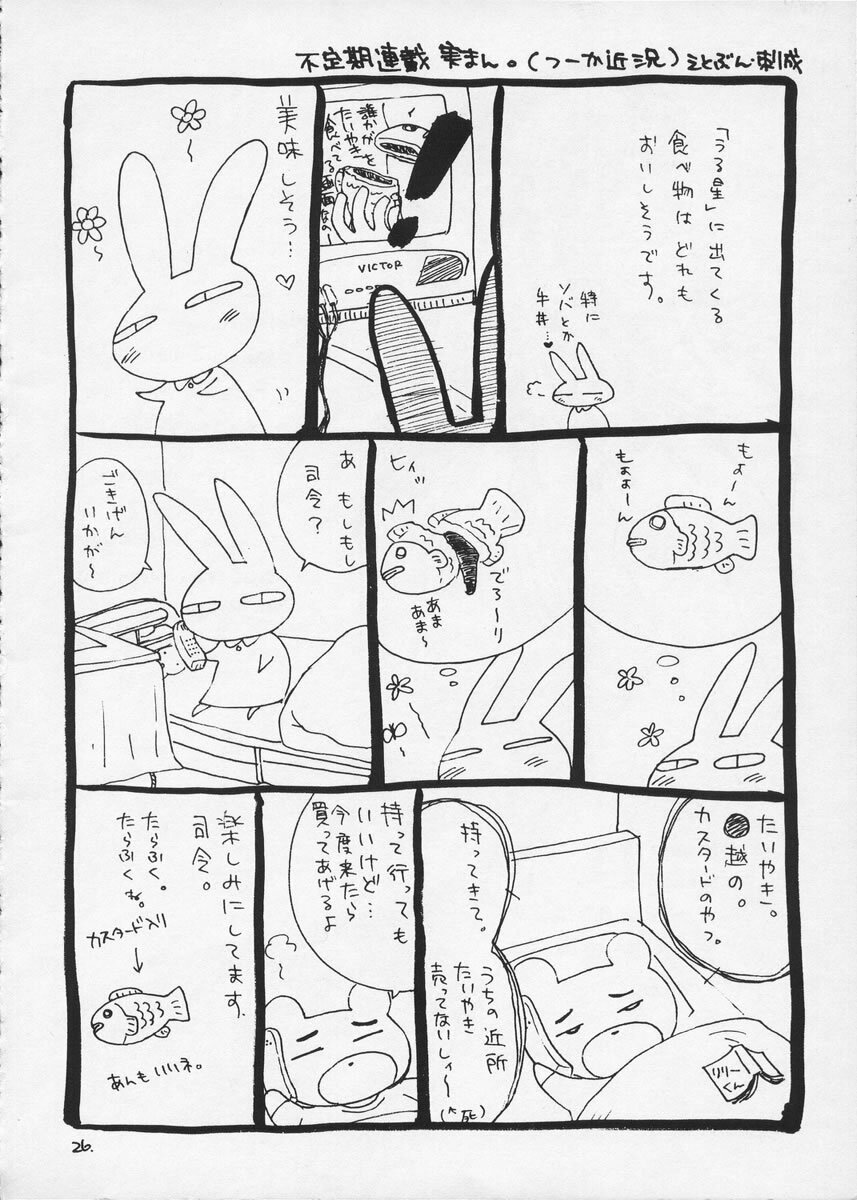 不定期連載 実まん。(つーか近況)えとぶん・刺成
「うる星」に出てくる
食べ物はどれも
おいしそうです。
特に
ソバとか
牛丼…♥
誰かが
たいやきを
食べてる
画面なの〜
VICTOR
美味しそう…♡
もよーん
もよよーん
ヒィッ
でろ〜り
あま
あま〜
あ もしもし
司令?
ごきげん
いかが〜
たいやき。
●越の。
カスタードのやつ。
持ってきて。
うちの近所
たいやき
売ってないしィ〜
(^死)
リリー
くん
持って行っても
いいけど…
今度来たら
買ってあげるよ
楽しみにしてます
司令。
たらふく。
たらふくね。
カスタード入り
あんもいいネ。
26.